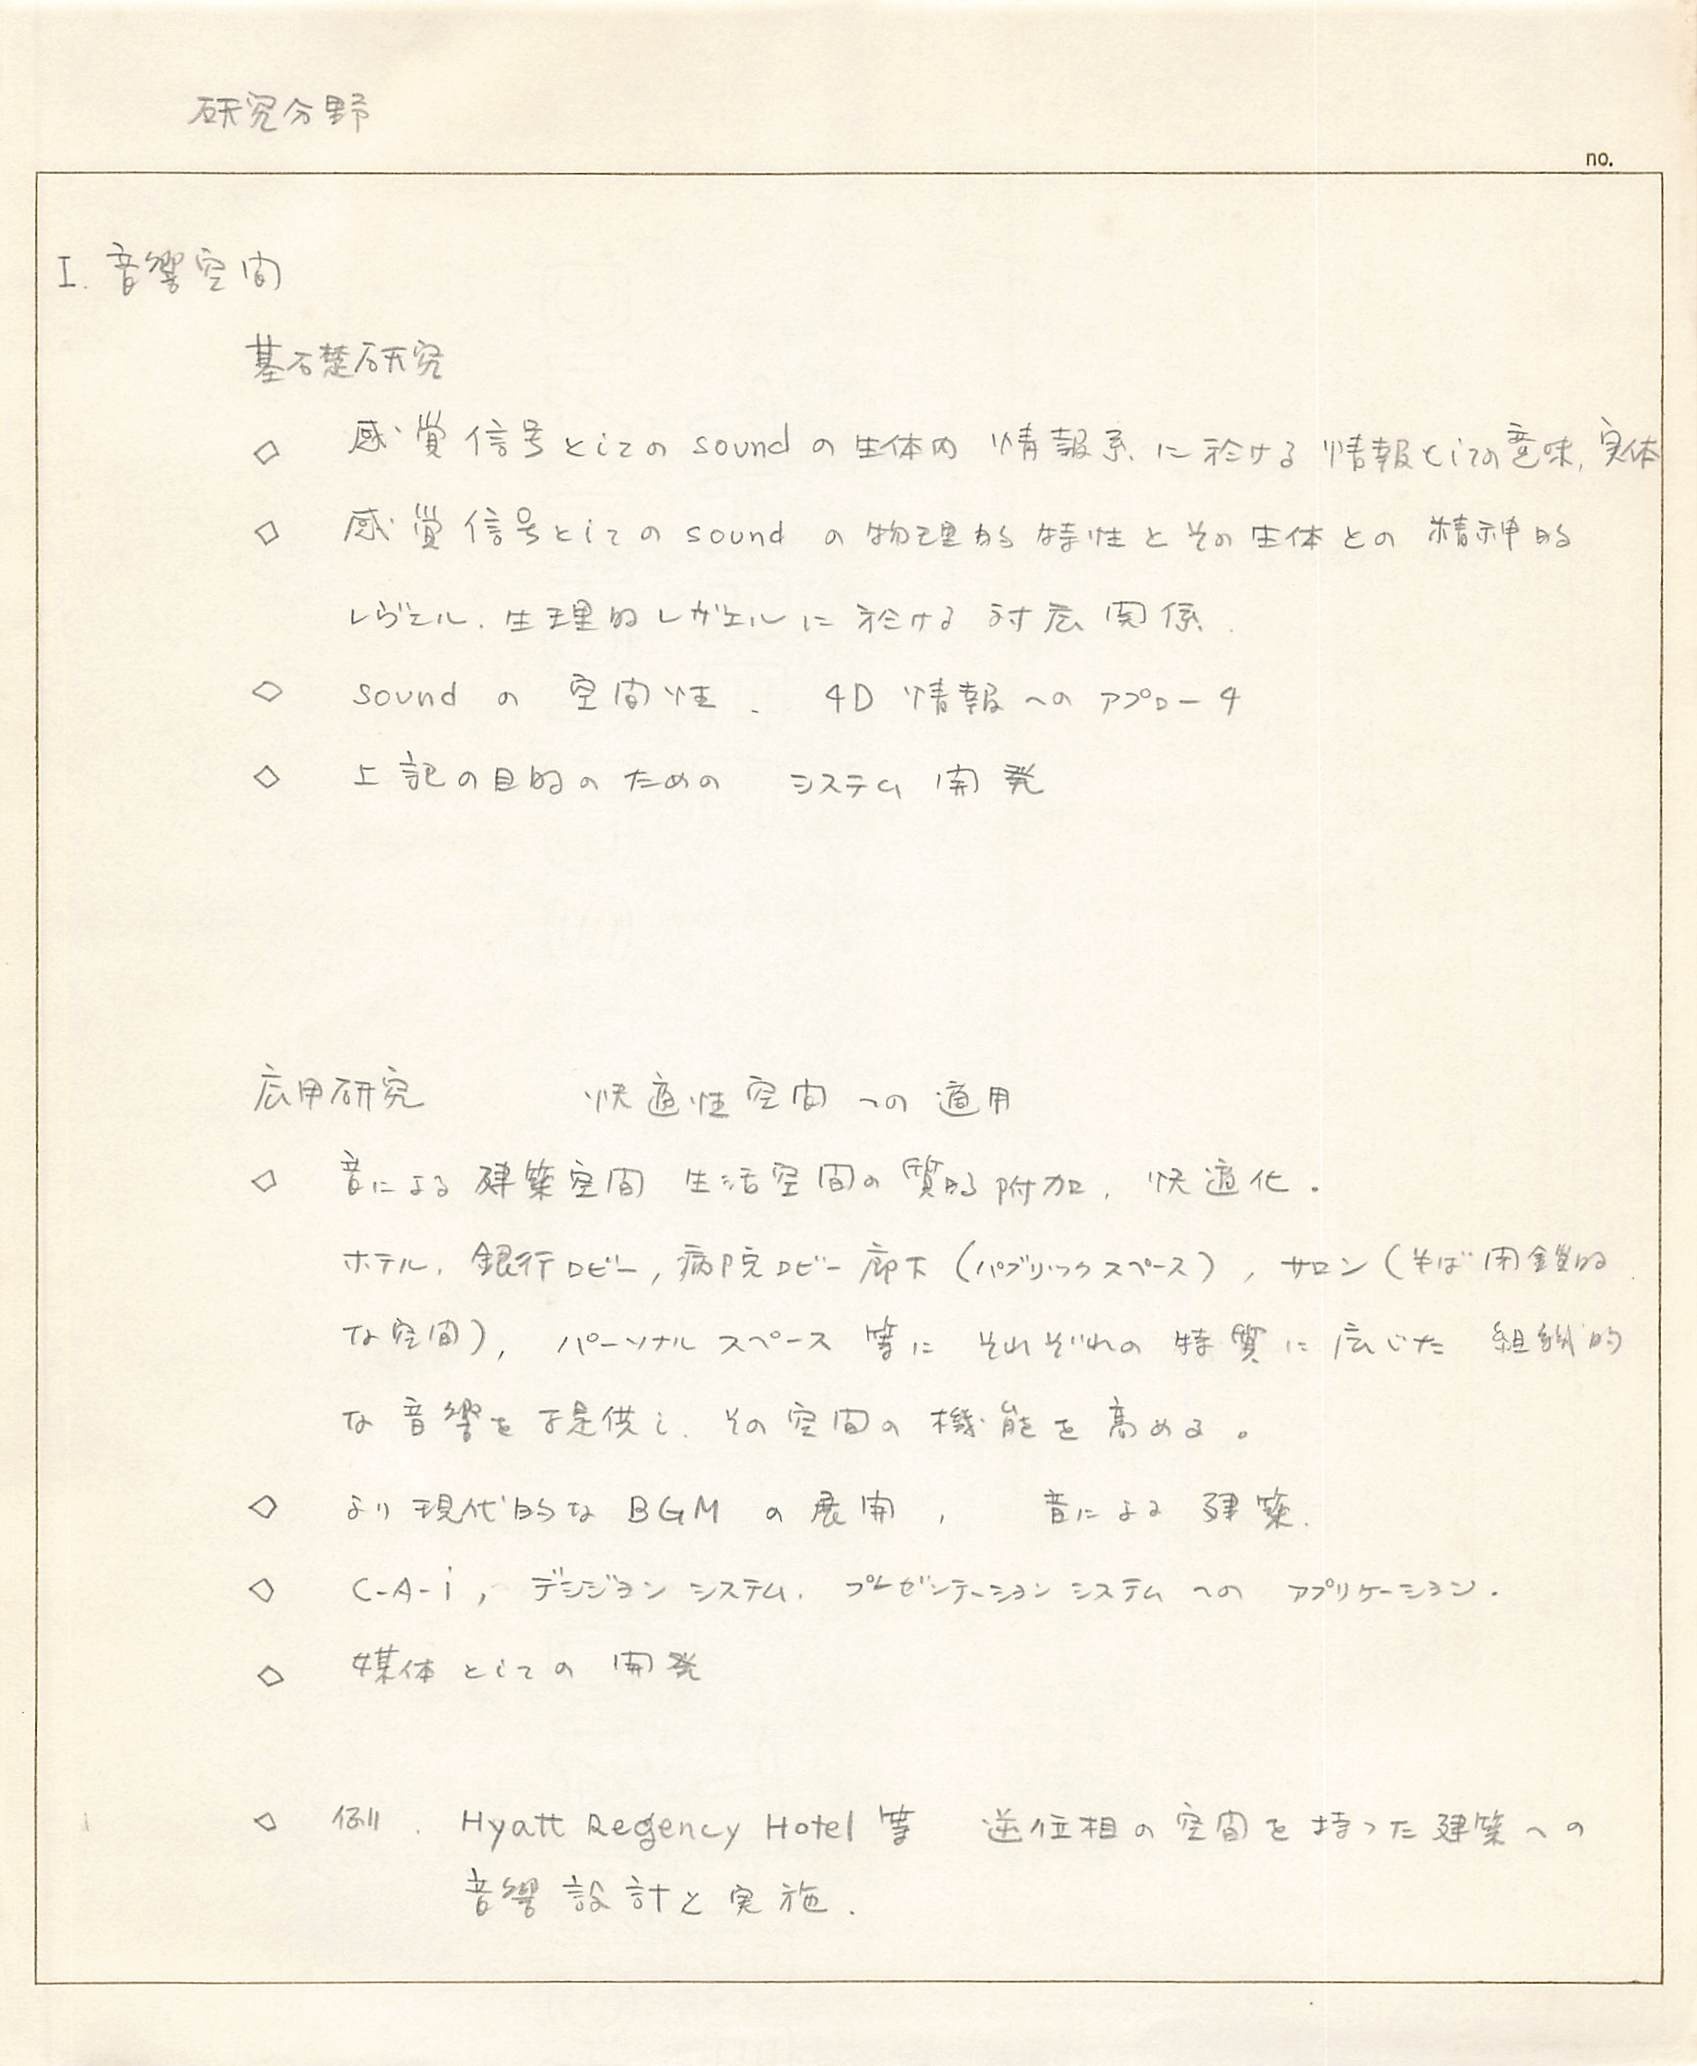 研究分野
no.
I. 音響空間
基礎研究
◇ 感覚信号としてのsoundの生体内 情報系に於ける情報としての意味, 実体
◇ 感覚信号としてのsoundの物理的特性とその生体との精神的
レヴェル. 生理的レヴェルに於ける対応関係.
◇ soundの空間性. 4D情報へのアプローチ
◇ 上記の目的のための システム開発
応用研究 快適性空間への適用
◇ 音による建築空間 生活空間の質的附加, 快適化.
ホテル. 銀行ロビー, 病院ロビー廊下 (パブリックスペース), サロン (半ば閉鎖的
な空間), パーソナルスペース等に それぞれの特質に応じた 組織的
な音響を提供し. その空間の機能を高める。
◇ より現代的なBGMの展開, 音による建築.
◇ C-A-i, デシジョンシステム. プレゼンテーションシステムへの アプリケーション.
◇ 媒体としての開発
◇ 例. Hyatt Regency Hotel等 逆位相の空間を持った建築への
音響設計と実施.